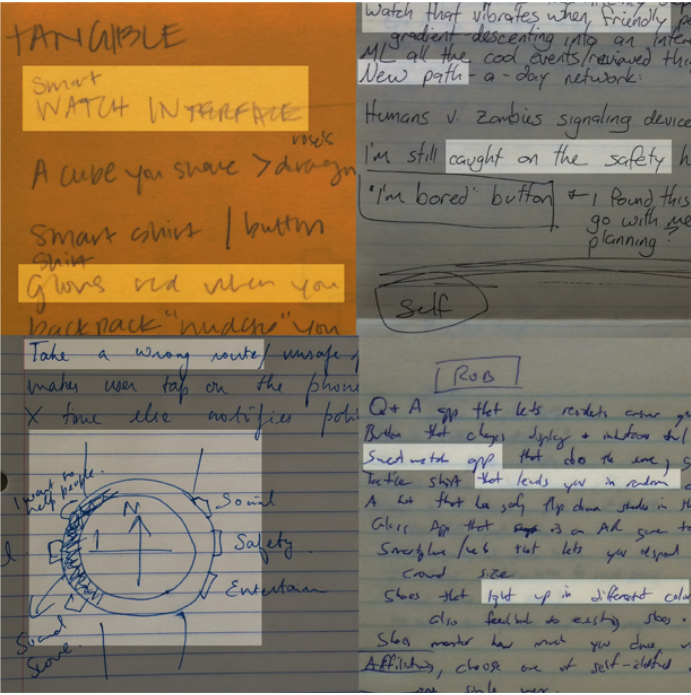 TANGIBLE
Smart
WATCH INTERFACE
A cube you share >
Smart shirt / button
Shirt
Glows red when you
backpack "nudges" you
Watch that vibrates when friendly
gradient-descenting into an
ML all the cool events/reviewed
New path-a-day network:
Humans v. Zombies signaling device
I'm still caught on the safety
"I'm bored" button
← I found this
go with me
planning?
Self
Take a wrong route/ unsafe
makes user tap on the phone
X time else notifies
I want to
help people.
N
1
Social
Safety
Entertain
Sound
ROB
Q+A app that lets residents answer
Button that changes display +
Smartwatch app that does the same,
Tactile shirt that leads you in random
A hat that has flip down in
Glass App that is an AR game
Smartphone / web that lets you respond
crowd size
Shoes that light up in different color
also feedback to existing shoes.
Shoes monitor how much you dance
Affiliation, choose one of self-